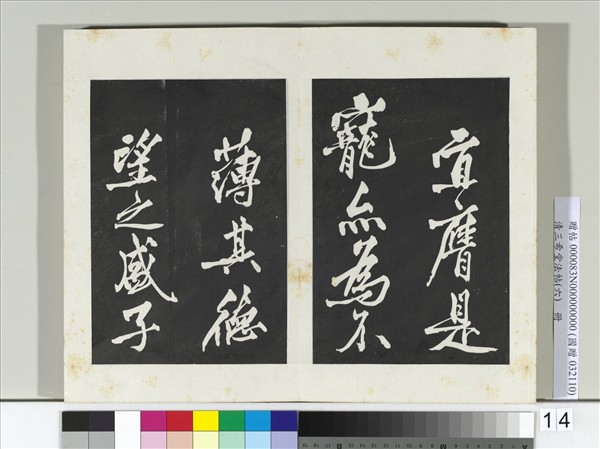 宜膺是
寵亦為不
薄其德
望之盛子
贈帖 000083N000000000 (國贈 032110)
清三希堂法帖(六) 冊
14